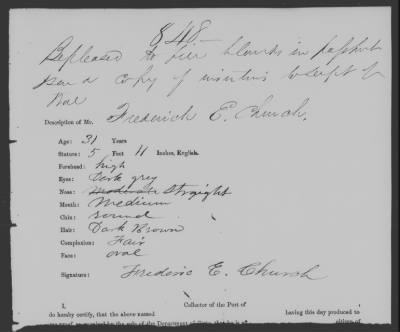 848
Be pleased to fill blanks in passport
a copy of
Description of Mr. Frederick E. Church.
Age: 31 Years
Stature: 5 Feet 11 Inches, English.
Forehead: high
Eyes: Dark grey
Nose: moderate Straight
Mouth: Medium
Chin: round
Hair: Dark Brown
Complexion: Fair
Face: oval
Signature: Frederic E. Church
I, Collector of the Port of
do hereby certify, that the above named having this day produced to